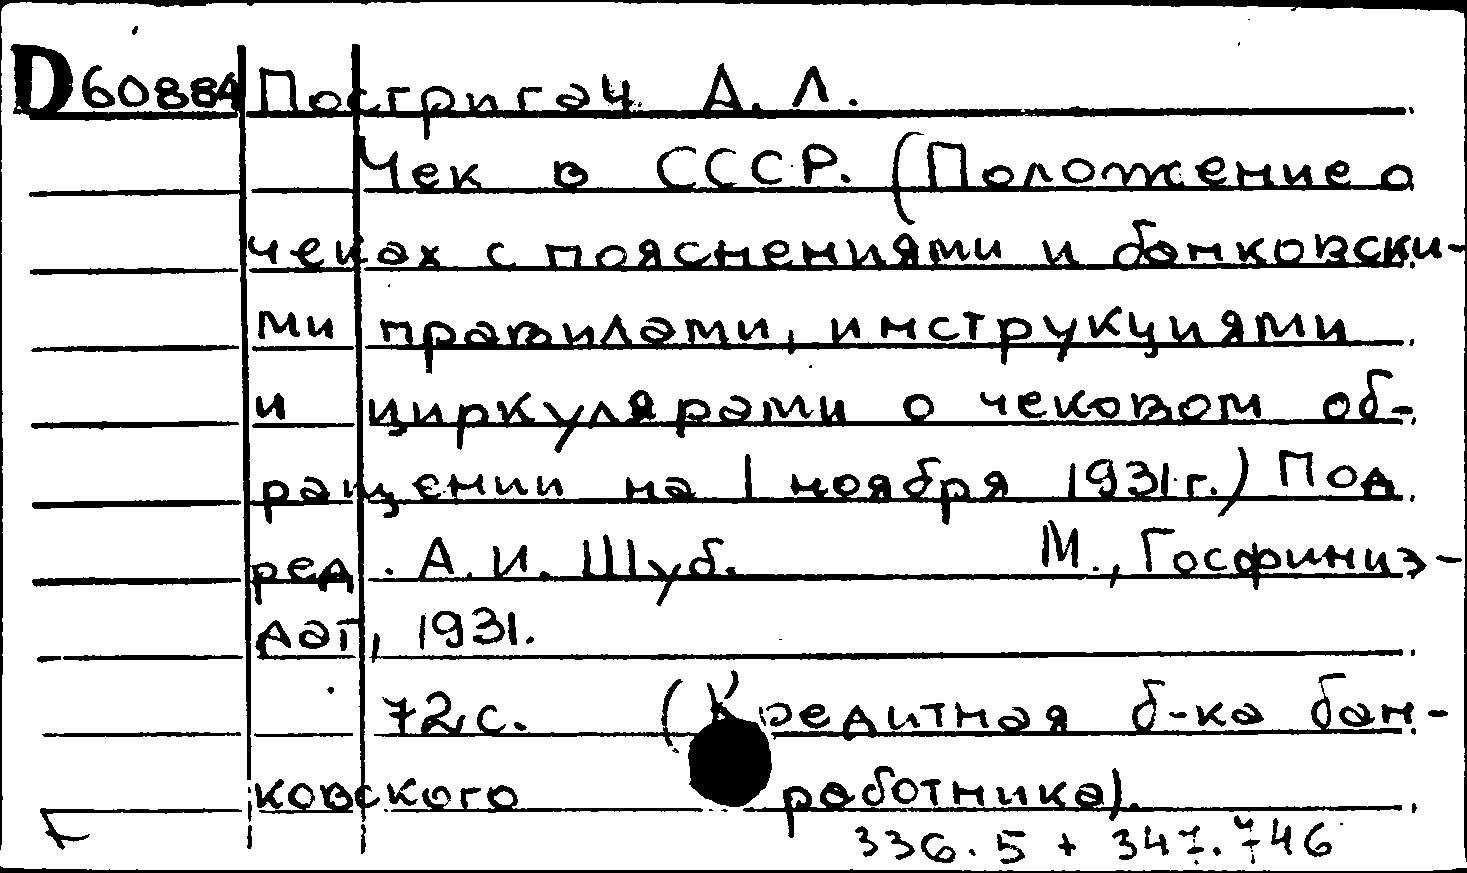 D60884 Постригач А. Л.
Чек в СССР. (Положение о
чеках с пояснениями и банковски-
ми правилами, инструкциями
и циркулярами о чековом об-
ращении на 1 ноября 1931 г.) Под
ред. А. И. Шуб. М., Госфиниз-
дат, 1931.
72 с. (Кредитная б-ка бан-
ковского работника).
336.5 + 347.746